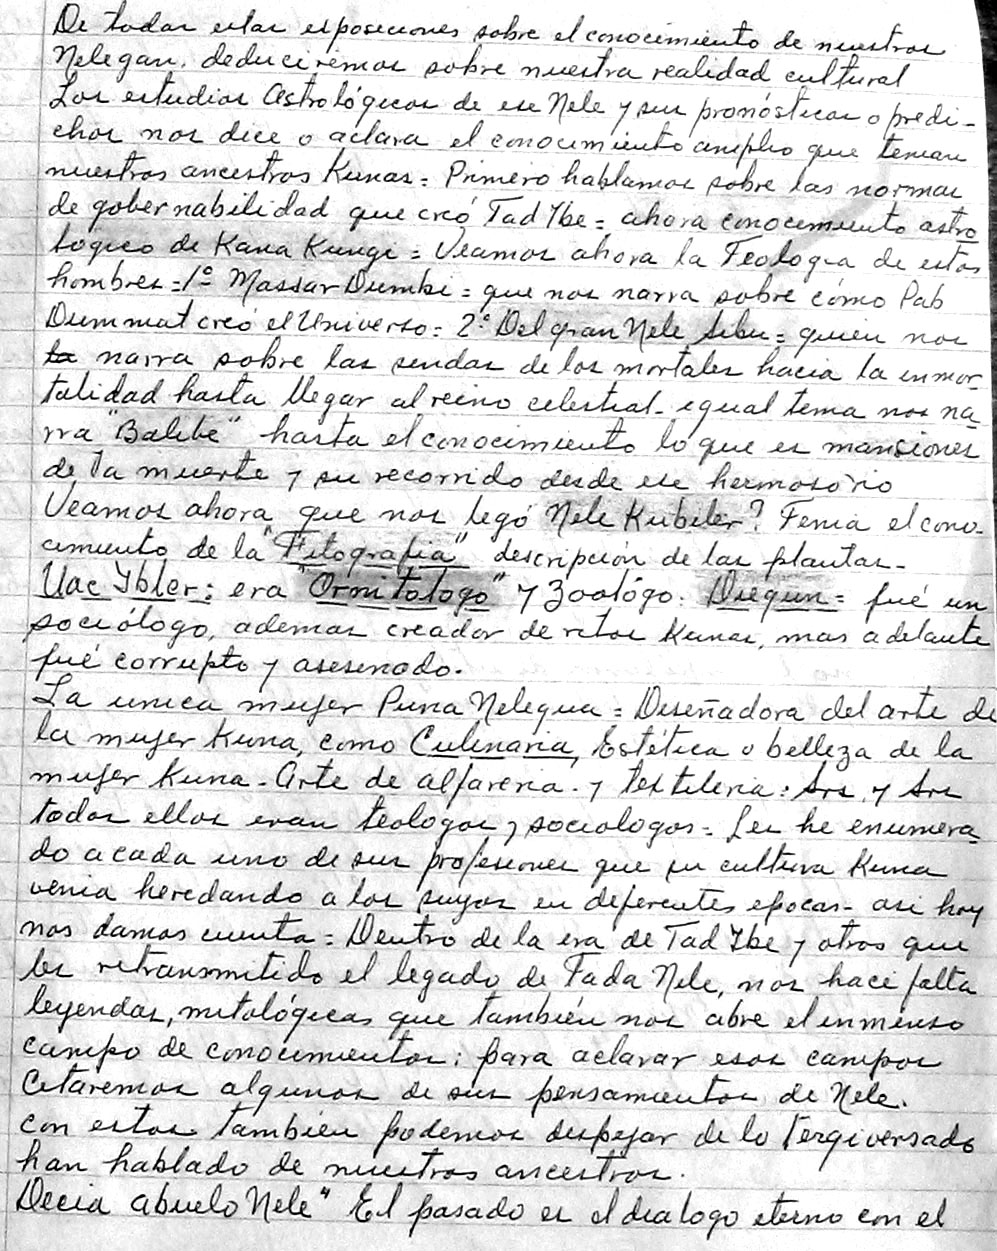 De todas estas esposiciones sobre el conocimiento de nuestros
Nelegan, deduciremos sobre nuestra realidad cultural
Los estudios Astrológicos de ese Nele y sus pronósticos o predi-
chos nos dice o aclara el conocimiento amplio que tenian
nuestros ancestros Kunas = Primero hablamos sobre las normas
de gobernabilidad que creó Tad Ybe = ahora conocimiento astro
lógico de Kana Kungi = Veamos ahora la Teologia de estos
hombres = 1º Massar Dumbi = que nos narra sobre cómo Pab
Dummat creó el Universo = 2º Del gran Nele Sibu = quien nos
narra sobre las sendas de los mortales hacia la inmor-
talidad hasta llegar al reino celestial - igual tema nos na-
rra "Balibe" hasta el conocimiento lo que es mansiones
de la muerte y su recorrido desde ese hermoso rio
Veamos ahora que nos legó Nele Kubiler? Tenia el cono-
cimiento de la "Fitografia" descripción de las plantas -
Uac Ybler: era "Ornitologo" y Zoológo. Diegun = fué un
sociólogo, ademas creador de ritos Kunas, mas adelante
fué corrupto y asesinado.
La unica mujer Puna Nelegua = Diseñadora del arte de
la mujer Kuna, como Culinaria, Estética o belleza de la
mujer Kuna - Arte de alfareria - y textileria =
todos ellos eran teologos y sociologos = Les he enumera-
do a cada uno de sus profesiones que su cultura Kuna
venia heredando a los suyos en diferentes epocas - asi hoy
nos damos cuenta = Dentro de la era de Tad Ybe y otros que
retransmitido el legado de Tada Nele, nos hace falta
leyendas, mitológicas que también nos abre el inmenso
campo de conocimientos: para aclarar esos campos
Citaremos algunos de sus pensamientos de Nele.
con estos también podemos despejar de lo Tergiversado
han hablado de nuestros ancestros.
Decia abuelo Nele " El pasado es el dialogo eterno con el